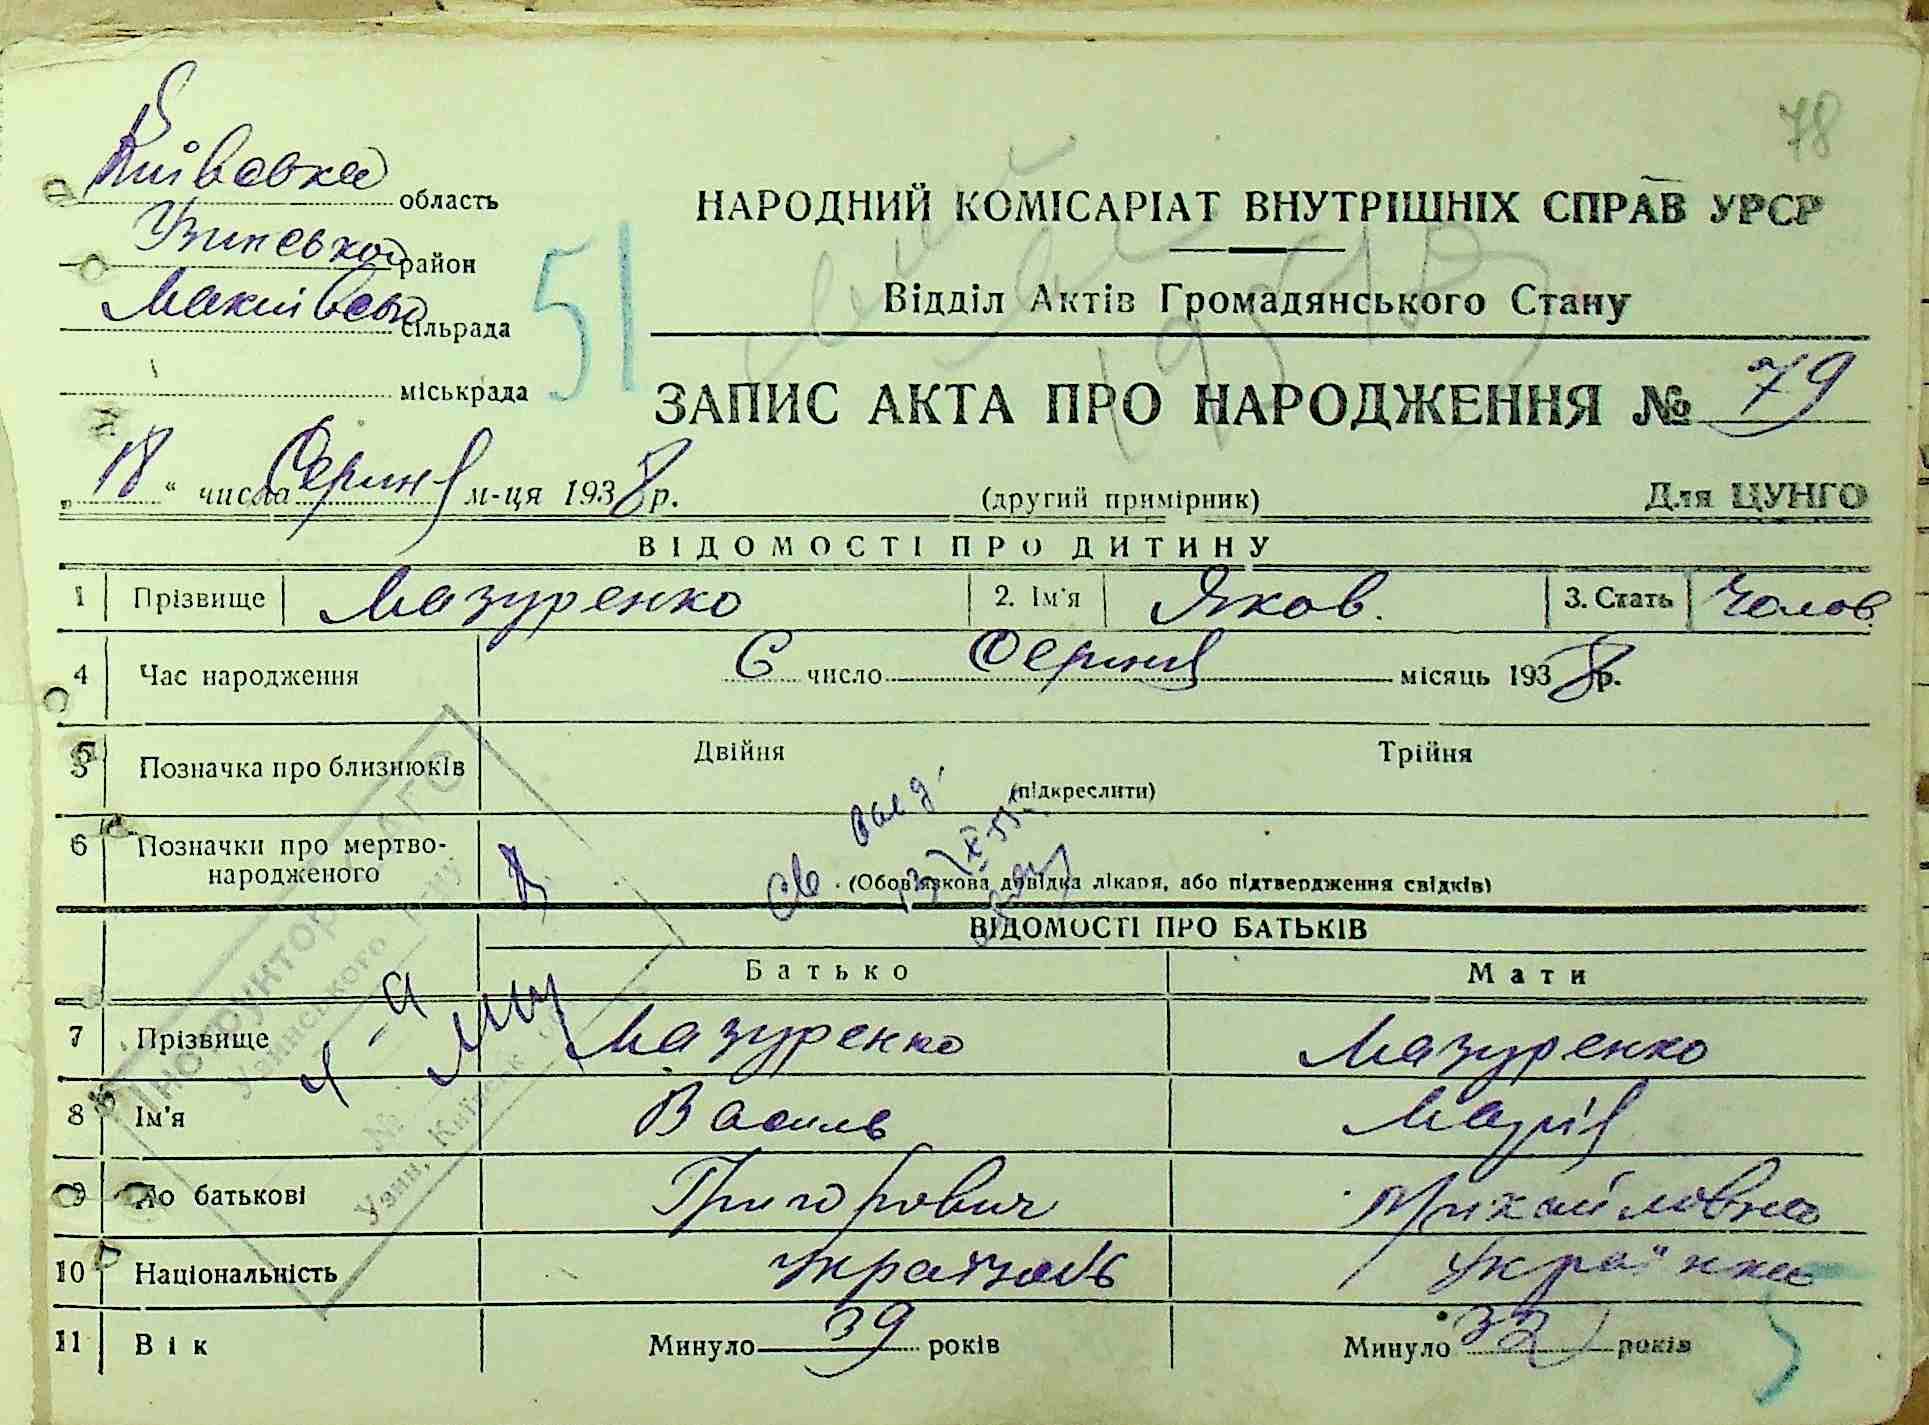 78
Київська область
НАРОДНИЙ КОМІСАРІАТ ВНУТРІШНІХ СПРАВ УРСР
Узинський район
Відділ Актів Громадянського Стану
Макіївська сільрада
51
міськрада
ЗАПИС АКТА ПРО НАРОДЖЕННЯ № 79
„18“ числа Серпня м-ця 1938 р.
(другий примірник)
Для ЦУНГО
ВІДОМОСТІ ПРО ДИТИНУ
1 Прізвище Мазуренко 2. Ім'я Яков. 3. Стать Чолов.
4 Час народження 6 число Серпня місяць 1938 р.
5 Позначка про близнюків Двійня Трійня
(підкреслити)
6 Позначки про мертво-
народженого
(Обов'язкова довідка лікаря, або підтвердження свідків)
ВІДОМОСТІ ПРО БАТЬКІВ
Батько Мати
7 Прізвище Мазуренко Мазуренко
8 Ім'я Василь Марія
9 По батькові Григорович Михайловна
10 Національність українець українка
11 Вік Минуло 39 років Минуло 32 років
Інструктор ЗАГС
Узинського
№
Узин, Київськ